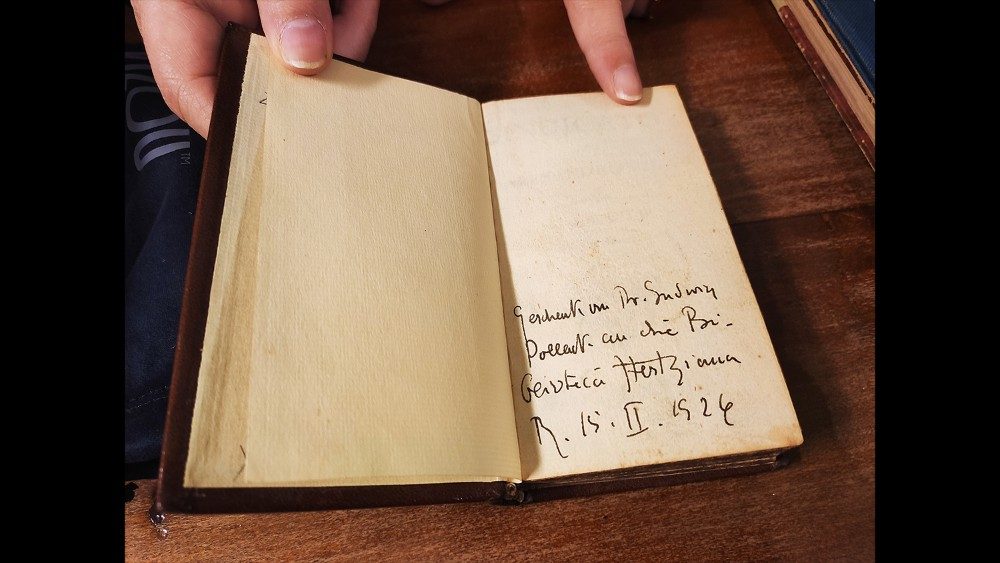 Geschenk von Dr. Ludwig
Pollak an die Bi-
blioteca Hertziana
R. 15. II. 1924
TM